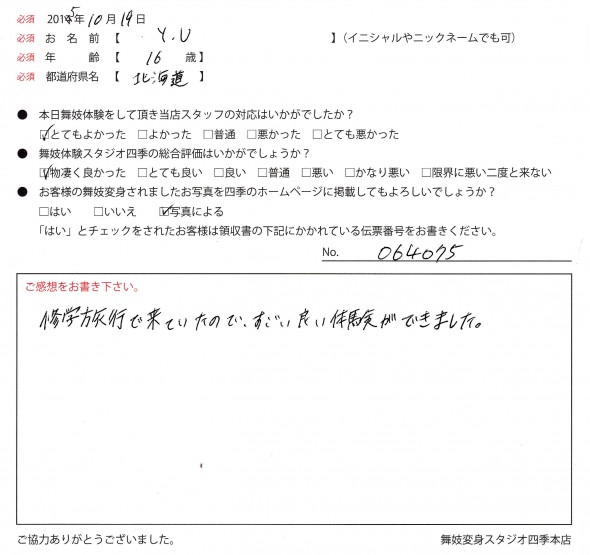 必須 2015年10月19日
必須 お名前【 Y.U 】（イニシャルやニックネームでも可）
必須 年齢【 16 歳】
必須 都道府県名【 北海道 】
● 本日舞妓体験をして頂き当店スタッフの対応はいかがでしたか？
☑とてもよかった □よかった □普通 □悪かった □とても悪かった
● 舞妓体験スタジオ四季の総合評価はいかがでしょうか？
☑物凄く良かった □とても良い □良い □普通 □悪い □かなり悪い □限界に悪い二度と来ない
● お客様の舞妓変身されましたお写真を四季のホームページに掲載してもよろしいでしょうか？
□はい □いいえ ☑写真による
「はい」とチェックをされたお客様は領収書の下記にかかれている伝票番号をお書きください。
No. 064075
ご感想をお書き下さい。
修学旅行で来ていたので、すごい良い体験ができました。
ご協力ありがとうございました。 舞妓変身スタジオ四季本店